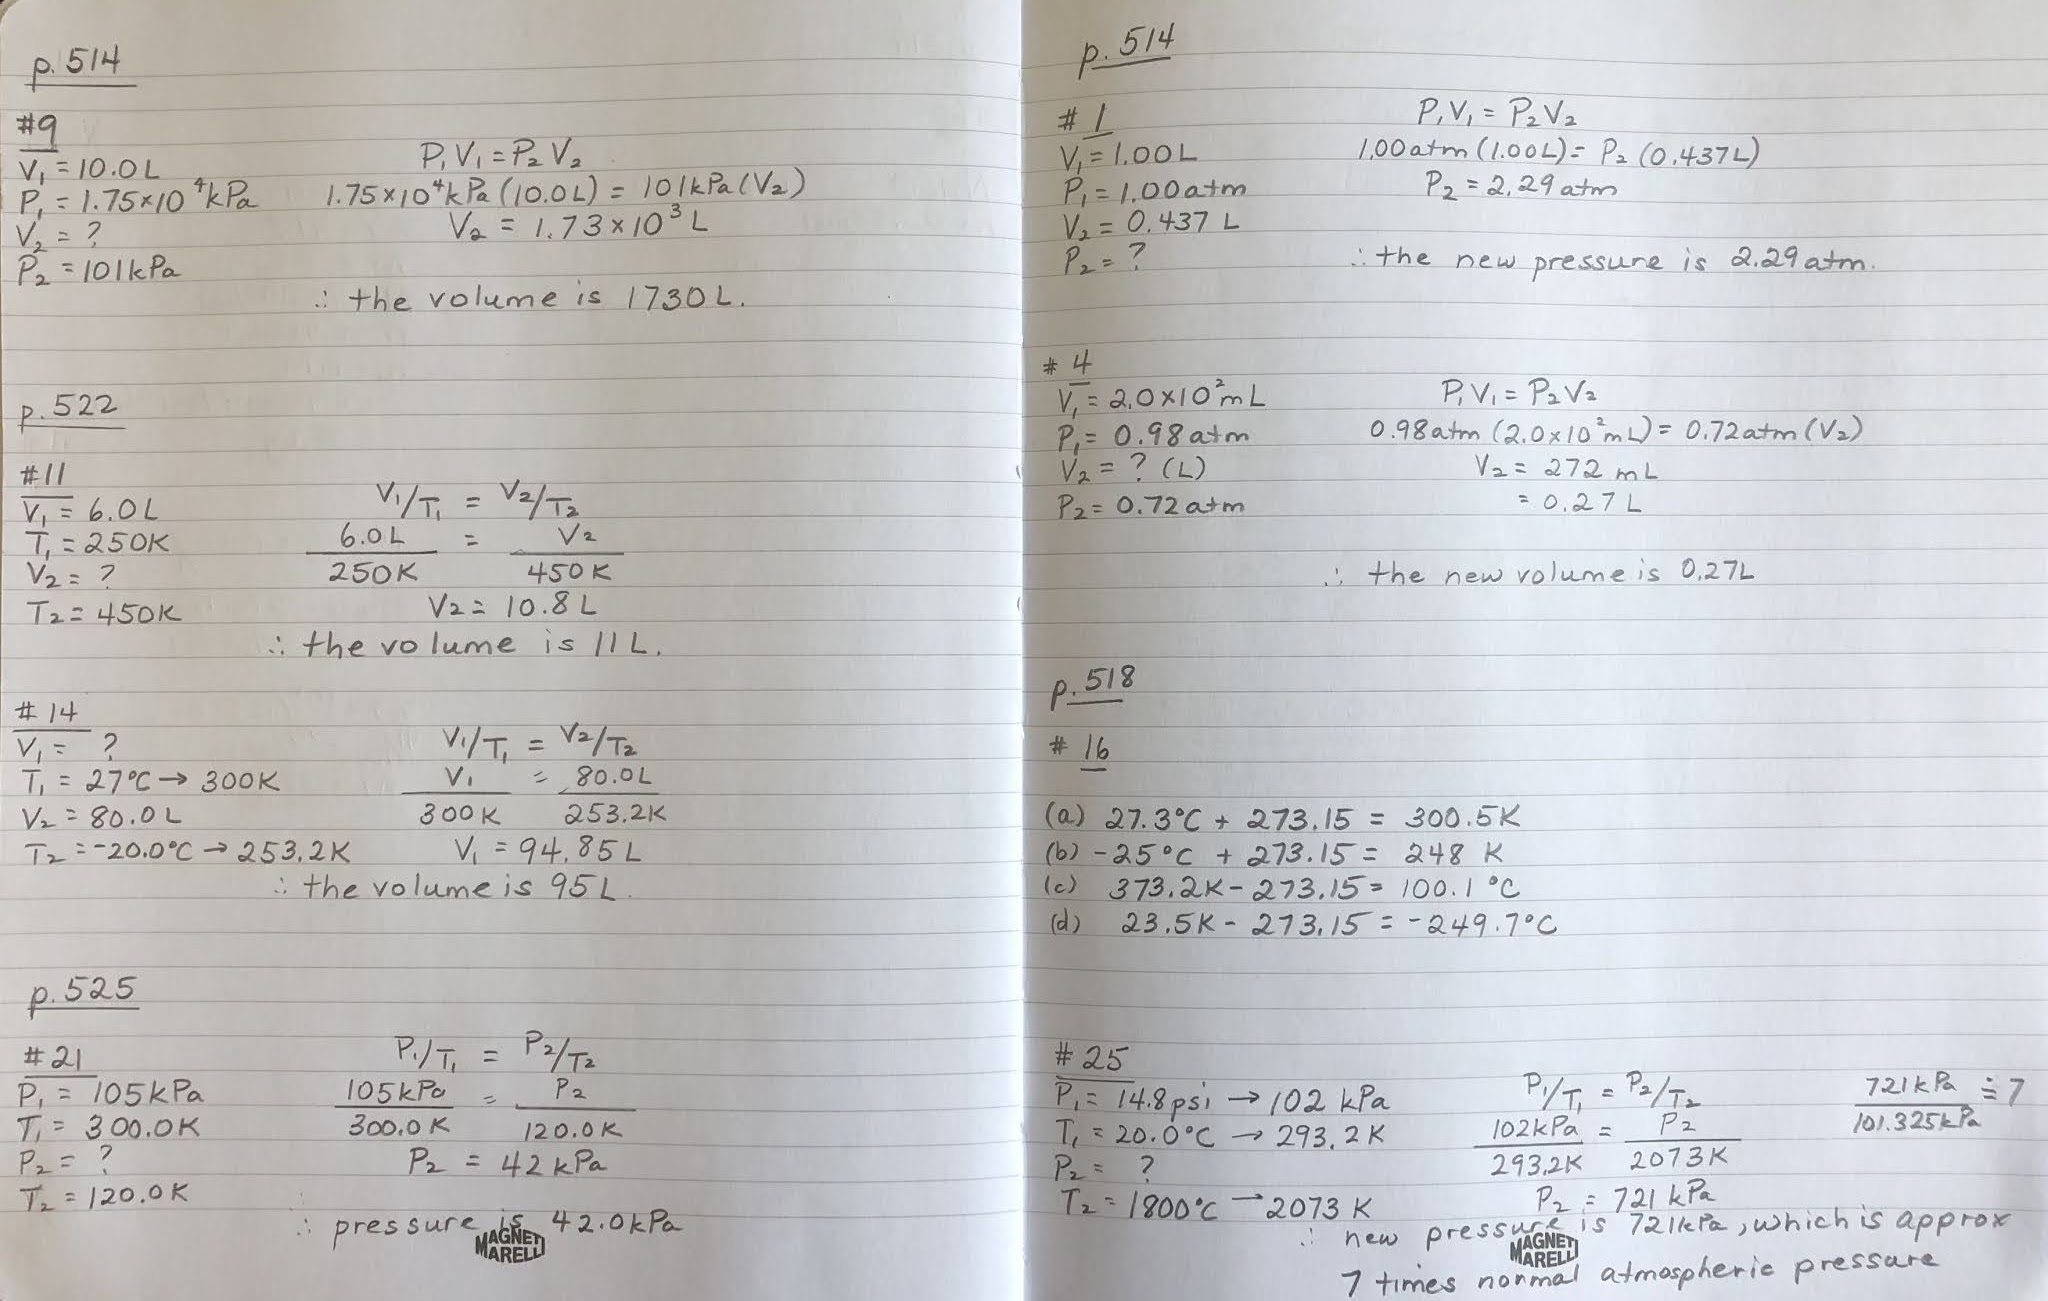 p. 514
#9
V₁ = 10.0L
P₁ = 1.75×10⁴kPa
V₂ = ?
P₂ = 101kPa
P₁V₁ = P₂V₂
1.75×10⁴kPa (10.0L) = 101kPa(V₂)
V₂ = 1.73×10³L
∴ the volume is 1730L.
p. 522
#11
V₁ = 6.0L
T₁ = 250K
V₂ = ?
T₂ = 450K
V₁/T₁ = V₂/T₂
6.0L = V₂
250K 450K
V₂ = 10.8L
∴ the volume is 11L.
#14
V₁ = ?
T₁ = 27°C → 300K
V₂ = 80.0L
T₂ = -20.0°C → 253.2K
V₁/T₁ = V₂/T₂
V₁ = 80.0L
300K 253.2K
V₁ = 94.85L
∴ the volume is 95L.
p. 525
#21
P₁ = 105kPa
T₁ = 300.0K
P₂ = ?
T₂ = 120.0K
P₁/T₁ = P₂/T₂
105kPa = P₂
300.0K 120.0K
P₂ = 42kPa
∴ pressure is 42.0kPa
MAGNETI
MARELLI
p. 514
#1
V₁ = 1.00L
P₁ = 1.00atm
V₂ = 0.437L
P₂ = ?
P₁V₁ = P₂V₂
1.00atm (1.00L) = P₂ (0.437L)
P₂ = 2.29atm
∴ the new pressure is 2.29atm.
#4
V₁ = 2.0×10²mL
P₁ = 0.98atm
V₂ = ? (L)
P₂ = 0.72atm
P₁V₁ = P₂V₂
0.98atm (2.0×10²mL) = 0.72atm(V₂)
V₂ = 272 mL
= 0.27L
∴ the new volume is 0.27L
p. 518
#16
(a) 27.3°C + 273.15 = 300.5K
(b) -25°C + 273.15 = 248 K
(c) 373.2K - 273.15 = 100.1°C
(d) 23.5K - 273.15 = -249.7°C
#25
P₁ = 14.8psi → 102 kPa
T₁ = 20.0°C → 293.2K
P₂ = ?
T₂ = 1800°C → 2073 K
P₁/T₁ = P₂/T₂
102kPa = P₂
293.2K 2073K
P₂ = 721 kPa
721kPa ≑ 7
101.325kPa
∴ new pressure is 721kPa, which is approx
7 times normal atmospheric pressure
MAGNETI
MARELLI